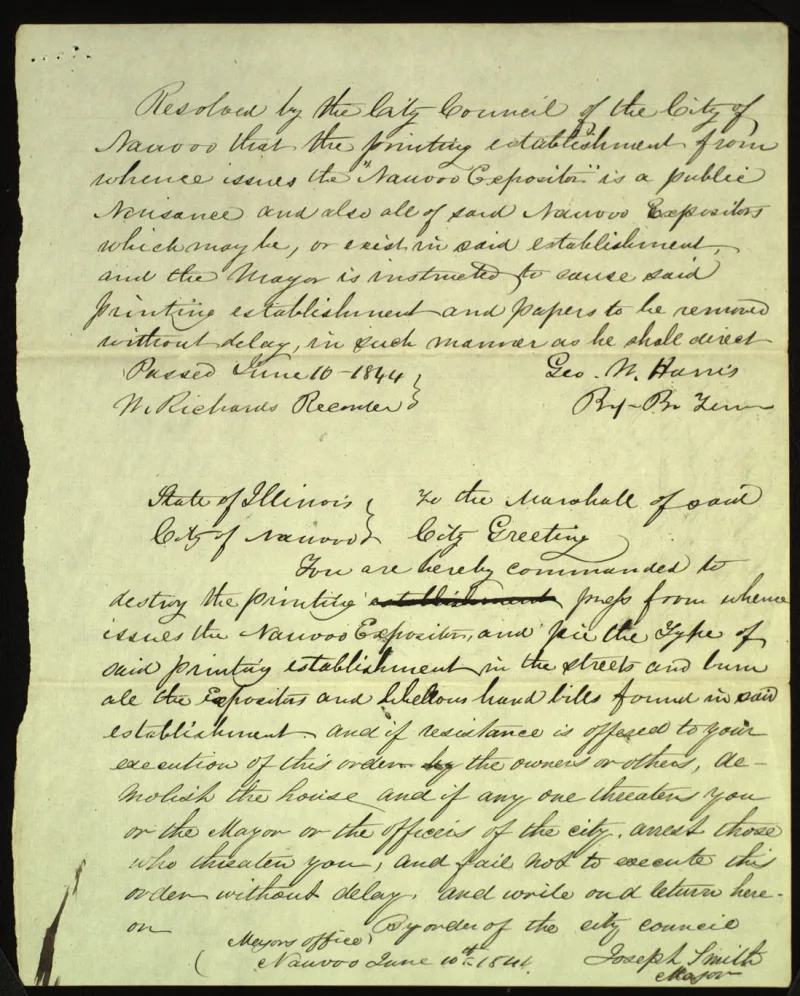 Resolved by the City Council of the City of
Nauvoo that the printing establishment from
whence issues the "Nauvoo Expositor" is a public
Nusance and also all of said Nauvoo Expositors
which may be, or exist in said establishment,
and the Mayor is instructed to cause said
printing establishment and papers to be removed
without delay, in such manner as he shall direct
Passed June 10-1844 } Geo. W. Harris
W. Richards Recorder }
State of Illinois } To the Marshall of said
City of Nauvoo } City Greeting
You are hereby commanded to
destroy the printing establishment press from whence
issues the Nauvoo Expositor, and pie the Type of
said printing establishment in the street and burn
all the Expositors and libellous hand bills found in said
establishment and if resistance is offered to your
execution of this order by the owners or others, de-
molish the house and if any one threatens you
or the Mayor or the officers of the city, arrest those
who threaten you, and fail not to execute this
order without delay. and write and return here-
on By order of the city council
Mayors office } Joseph Smith
Nauvoo June 10th 1844. Mayor